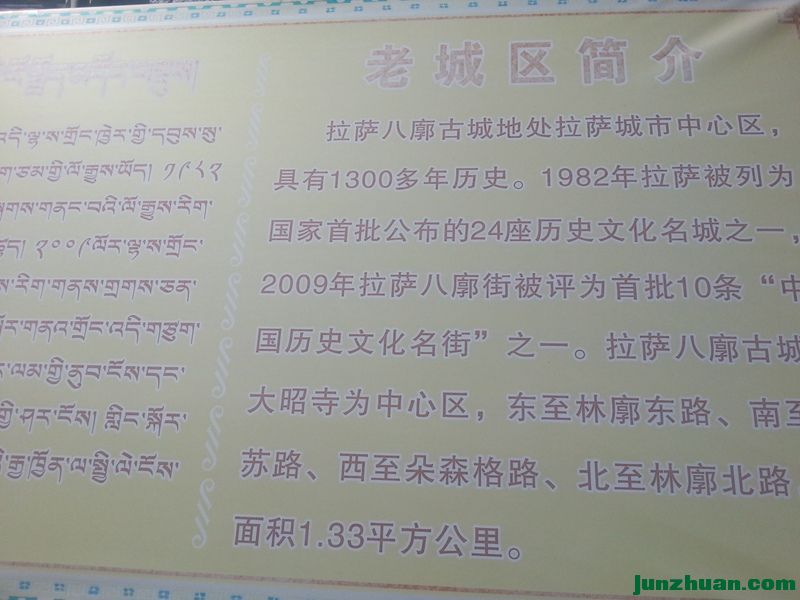 老城区简介
拉萨八廓古城地处拉萨城市中心区，
具有1300多年历史。1982年拉萨被列为
国家首批公布的24座历史文化名城之一，
2009年拉萨八廓街被评为首批10条“中
国历史文化名街”之一。拉萨八廓古城
大昭寺为中心区，东至林廓东路、南至
苏路、西至朵森格路、北至林廓北路
面积1.33平方公里。
འདི་ལྷ་ས་གྲོང་ཁྱེར་གྱི་དབུས་སུ་
ག་ཙམ་གྱི་ལོ་རྒྱུས་ཡོད། ༡༩༨༢
གྲགས་གནང་བའི་ལོ་རྒྱུས་རིག་
༢༠༠༩ལོར་ལྷ་ས་གྲོང་
ས་རིག་གནས་གྲགས་ཅན་
སྐོར་གནའ་གྲོང་འདི་གཙུག་
ལམ་གྱི་ནུབ་ངོས་དང་
གྱི་ཤར་ངོས། གླིང་སྐོར་
རྒྱ་ཁྱོན་ལ་སྤྱི་ལེ་ངོས་
junzhuan.com